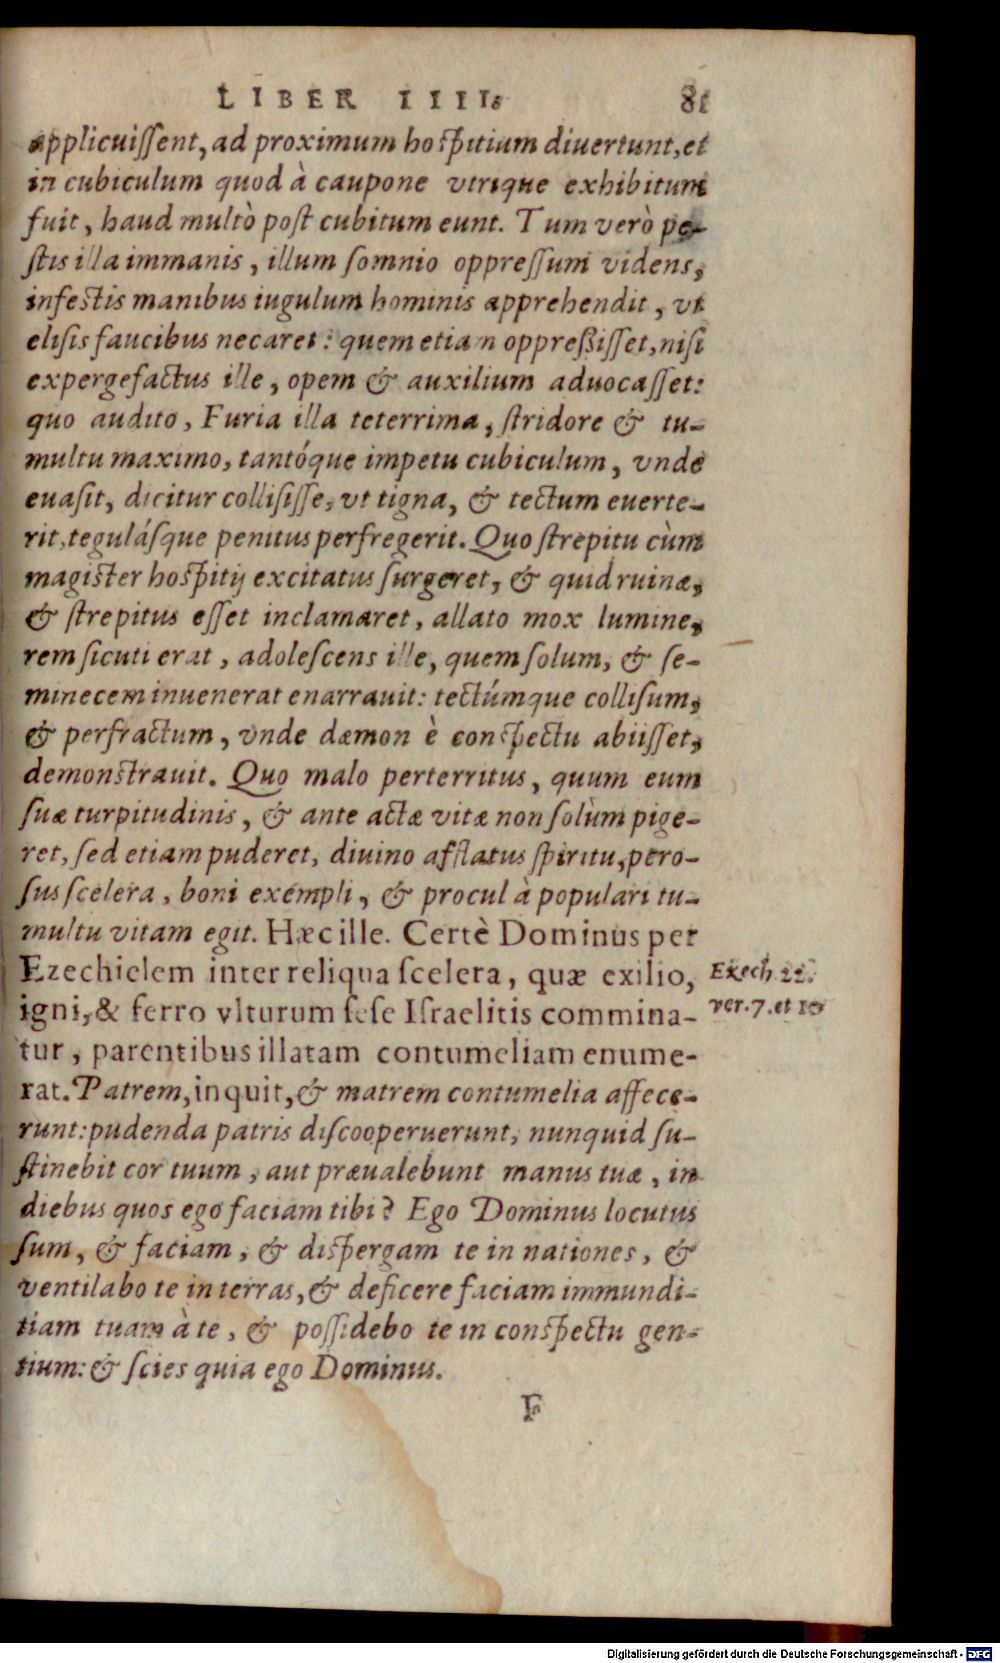 LIBER IIII. 81
applicuiſſent, ad proximum hoſpitium diuertunt, et
in cubiculum quod à caupone vtrique exhibitum
fuit, haud multò poſt cubitum eunt. Tum verò pe-
ſtis illa immanis, illum ſomnio oppreſſum videns,
infeſtis manibus iugulum hominis apprehendit, vt
eliſis faucibus necaret: quem etiam oppreßiſſet, niſi
expergefactus ille, opem & auxilium aduocaſſet:
quo audito, Furia illa teterrima, ſtridore & tu-
multu maximo, tantóque impetu cubiculum, vnde
euaſit, dicitur colliſiſſe, vt tigna, & tectum euerte-
rit, teguláſque penitus perfregerit. Quo ſtrepitu cùm
magiſter hoſpitij excitatus ſurgeret, & quid ruinæ,
& ſtrepitus eſſet inclamaret, allato mox lumine,
rem ſicuti erat, adoleſcens ille, quem ſolum, & ſe-
minecem inuenerat enarrauit: tectúmque colliſum,
& perfractum, vnde dæmon è conſpectu abiiſſet,
demonſtrauit. Quo malo perterritus, quum eum
ſuæ turpitudinis, & ante actæ vitæ non ſolùm pige-
ret, ſed etiam puderet, diuino afflatus ſpiritu, pero-
ſus ſcelera, boni exémpli, & procul à populari tu-
multu vitam egit. Hæc ille. Certè Dominus per
Ezechielem inter reliqua ſcelera, quæ exilio,
igni, & ferro vlturum ſeſe Iſraelitis commina-
tur, parentibus illatam contumeliam enume-
rat. Patrem, inquit, & matrem contumelia affece-
runt: pudenda patris diſcooperuerunt, nunquid ſu-
ſtinebit cor tuum, aut præualebunt manus tuæ, in
diebus quos ego faciam tibi? Ego Dominus locutus
ſum, & faciam, & diſpergam te in nationes, &
ventilabo te in terras, & deficere faciam immundi-
tiam tuam à te, & poſſidebo te in conſpectu gen-
tium: & ſcies quia ego Dominus.
F
Ezech. 22.
ver. 7. et 10
Digitalisierung gefördert durch die Deutsche Forschungsgemeinschaft - DFG